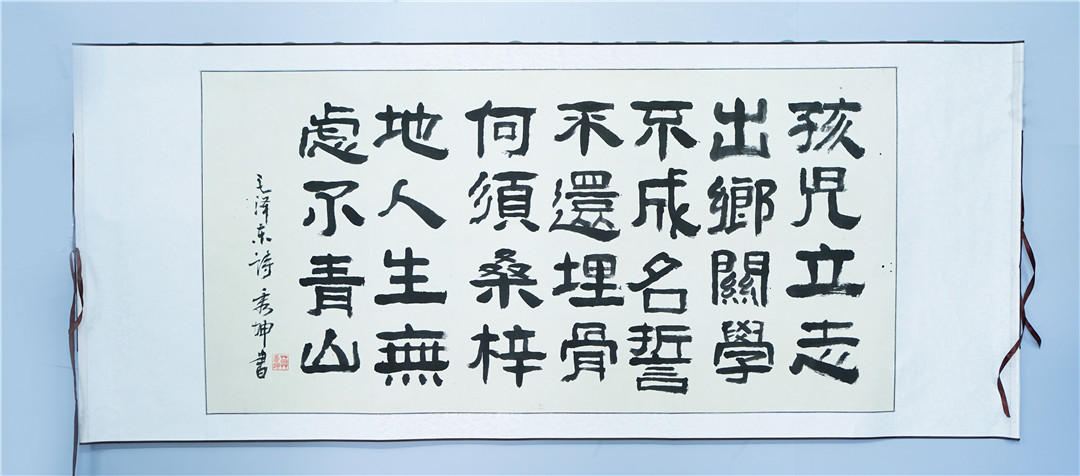 孩児立志
出鄉關學
不成名誓
不還埋骨
何須桑梓
地人生無
處不青山
毛泽东诗 秀坤書